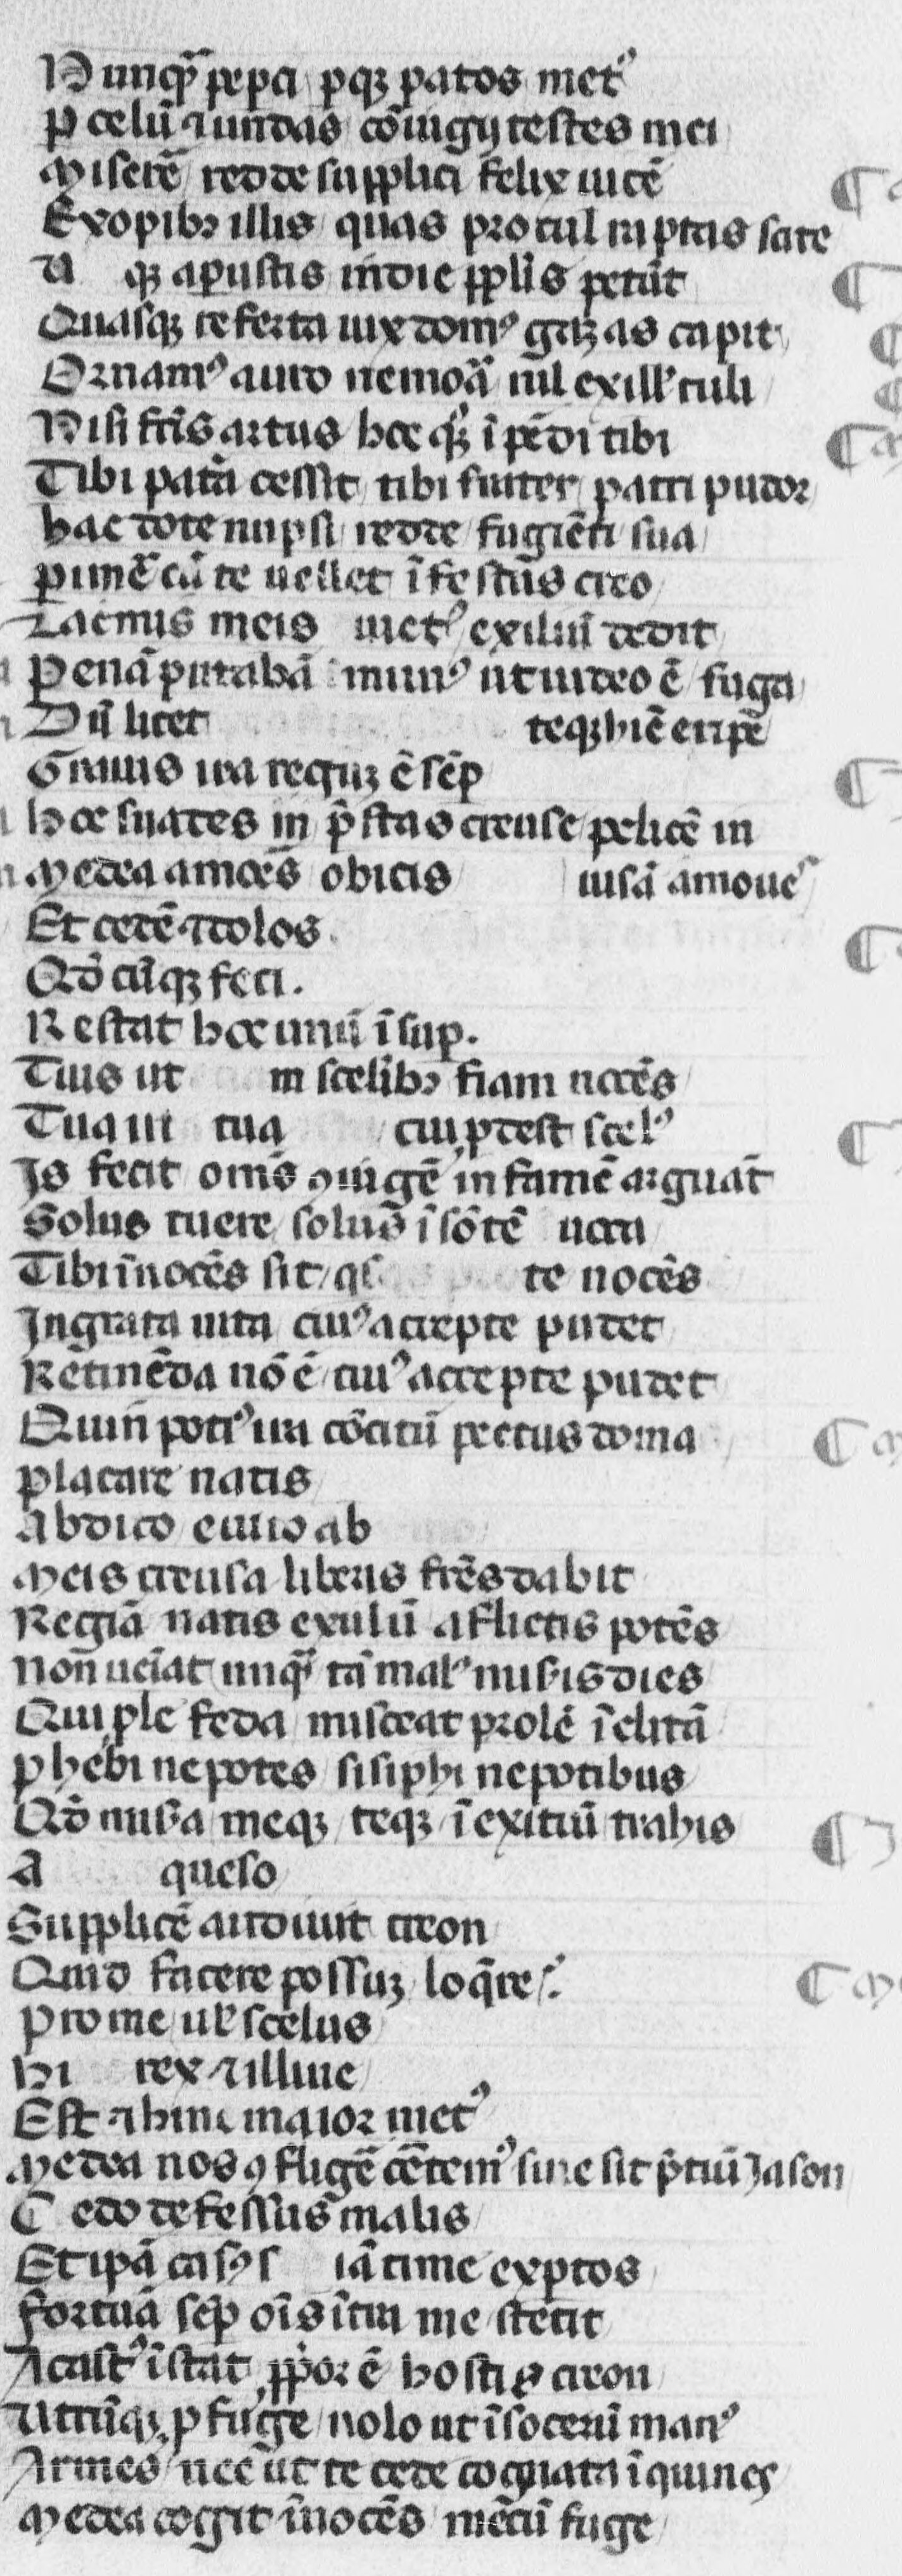 Nunqͣ pepci ꝑqꝫ patos metꝰ
ꝑ celū ⁊ undas cōiugij testes mei
Miserē redde supplici felix uicē
Exopibꝫ illis quas procul raptas scite
U qꝫ aꝑustis indie pplis petūt
Quasqꝫ referta uix domꝰ gazas capit
Ornamꝰ auro nemora nil exillˢ tuli
Nisi fr̄is artus hoc qꝫ ī pēdi tibi
Tibi patͣa cessit tibi frater patri pudor
hac dote nupsi redde fugiēti sua
ꝑimē cū te uellet ī festus creo
Lacrimis meis uictꝰ exiliū dedit
Penā putabā munꝰ ut uideo ē fuga
Dū licet teqꝫ hīc eripe
Grauis ira regū ē sēp
Hoc suades in p̄stas creuse pelicē in
Medea amores obicis iusā amoues
Et cedē ⁊ dolos
Qd̄ cūqꝫ feci.
Restat hoc unū ī suꝑ.
Tuis ut in scelibꝫ fiam nocēs
Tua ui tua cui ꝓdest scelꝰ
Is fecit om̄s ꝯiugē infamē arguāt
Solus tuere solus ī sōtē uoca
Tibi īnocēs sit qͥs te nocēs
Ingrata uita cuiꝰ accepte pudet
Retinēda nō ē cuiꝰ accepte pudet
Quin potiꝰ ira cōcitū pectus doma
Placare natis
Abdico eiuro ab
Meis creusa liberis fr̄es dabit
Regīa natis exulū aflictis potēs
Non ueīat unqͣ tā malꝰ miseris dies
Qui ꝓle feda misceat prolē ī clitā
Phebi nepotes sisiphi nepotibus
Qd̄ misera meqꝫ teqꝫ ī exitiū trahis
A queso
Supplicē audiuit creon
Quid facere possuꝫ loq̄re
Pro me ul̄ scelus
Hi rex ⁊ illuic
Est ⁊ hinc maior metꝰ
Medea nos ꝯfligē cētemꝰ sine sit p̄tiū Jason
Cedo defessus malis
Et ip̄ā casꝰ s iā time exꝑtos
Fortuā seꝑ oīs ītra me stetit
Acastꝰ īstat ꝓpior ē hostis creon
Utrūqꝫ ꝓfuge nolo ut ī socerū manꝰ
Armes nec ut te cede cognata īquines
Medea cogit īnocēs mēcū fuge